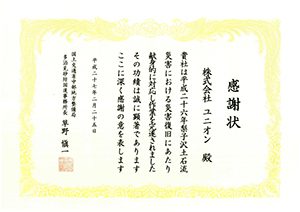 感謝状
株式会社 ユニオン 殿
貴社は平成二十六年梨子沢土石流
災害における災害復旧にあたり
献身的に対応し作業を完遂されました
その功績は誠に顕著であります
ここに深く感謝の意を表します
平成二十七年二月二十五日
国土交通省中部地方整備局
多治見砂防国道事務所長 草野 愼一